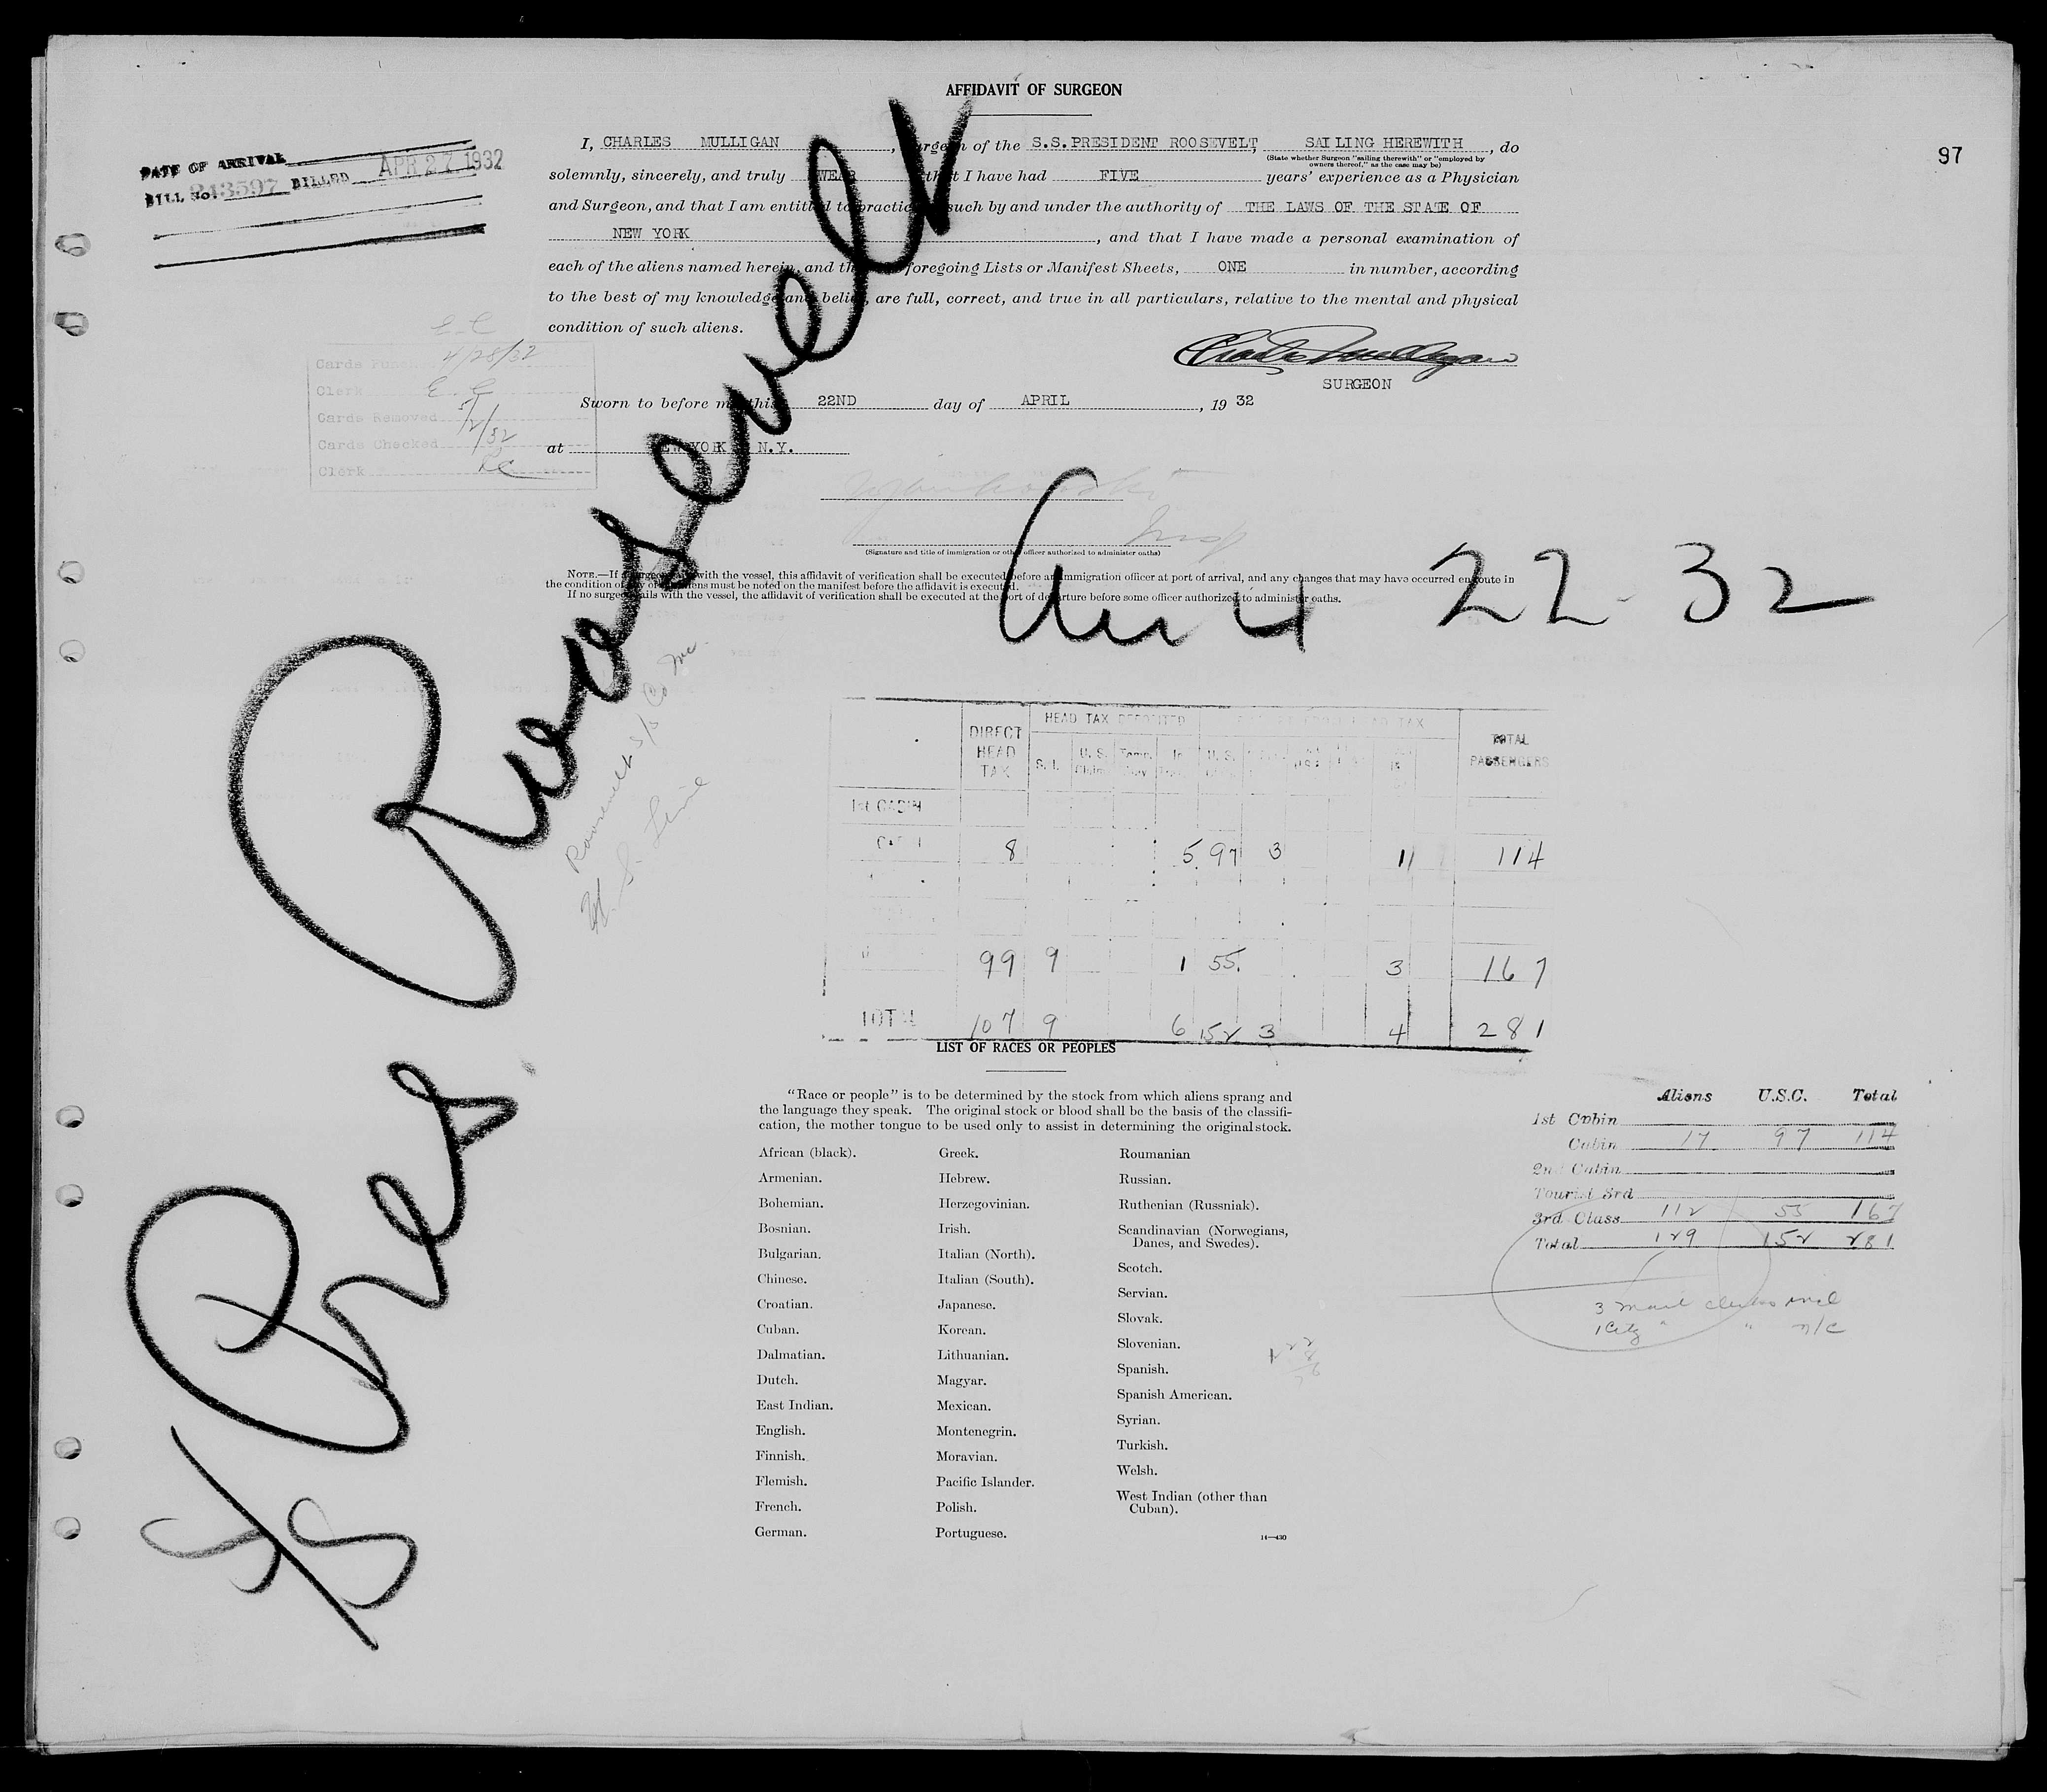 AFFIDAVIT OF SURGEON
97
DATE OF ARRIVAL
BILL No. 243597 BILLED APR 27 1932
I, CHARLES MULLIGAN, Surgeon of the S.S.PRESIDENT ROOSEVELT, SAILING HEREWITH, do
(State whether Surgeon "sailing therewith" or "employed by
owners thereof," as the case may be)
solemnly, sincerely, and truly SWEAR that I have had FIVE years' experience as a Physician
and Surgeon, and that I am entitled to practice as such by and under the authority of THE LAWS OF THE STATE OF
NEW YORK, and that I have made a personal examination of
each of the aliens named herein, and that the foregoing Lists or Manifest Sheets, ONE in number, according
to the best of my knowledge and belief, are full, correct, and true in all particulars, relative to the mental and physical
condition of such aliens.
Charles Mulligan
SURGEON
Sworn to before me this 22ND day of APRIL, 19 32
at NEW YORK N.Y.
Insp
(Signature and title of immigration or other officer authorized to administer oaths)
E C
Cards Punched 4/28/32
Clerk E C
Cards Removed
Cards Checked 5/2/32
Clerk RC
NOTE.—If a surgeon sails with the vessel, this affidavit of verification shall be executed before an immigration officer at port of arrival, and any changes that may have occurred en route in
the condition of any of the aliens must be noted on the manifest before the affidavit is executed.
If no surgeon sails with the vessel, the affidavit of verification shall be executed at the port of departure before some officer authorized to administer oaths.
S/S Pres. Roosevelt
Arr 4 22-32
Roosevelt S/S Co Inc.
U. S. Line
DIRECT HEAD TAX HEAD TAX DEPOSITED HEAD TAX TOTAL PASSENGERS
S.I. U.S. Claim Temp. In U.S.
1st CABIN
CABIN 8 5 97 3 1 114
99 9 1 55 3 167
TOTAL 107 9 6 152 3 4 281
LIST OF RACES OR PEOPLES
"Race or people" is to be determined by the stock from which aliens sprang and
the language they speak. The original stock or blood shall be the basis of the classifi-
cation, the mother tongue to be used only to assist in determining the original stock.
African (black).
Armenian.
Bohemian.
Bosnian.
Bulgarian.
Chinese.
Croatian.
Cuban.
Dalmatian.
Dutch.
East Indian.
English.
Finnish.
Flemish.
French.
German.
Greek.
Hebrew.
Herzegovinian.
Irish.
Italian (North).
Italian (South).
Japanese.
Korean.
Lithuanian.
Magyar.
Mexican.
Montenegrin.
Moravian.
Pacific Islander.
Polish.
Portuguese.
Roumanian
Russian.
Ruthenian (Russniak).
Scandinavian (Norwegians,
Danes, and Swedes).
Scotch.
Servian.
Slovak.
Slovenian.
Spanish.
Spanish American.
Syrian.
Turkish.
Welsh.
West Indian (other than
Cuban).
14—430
Aliens U.S.C. Total
1st Cabin
Cabin 17 97 114
2nd Cabin
Tourist 3rd
3rd Class 112 55 167
Total 129 152 281
3 mail clerks incl
1 City " " n/c